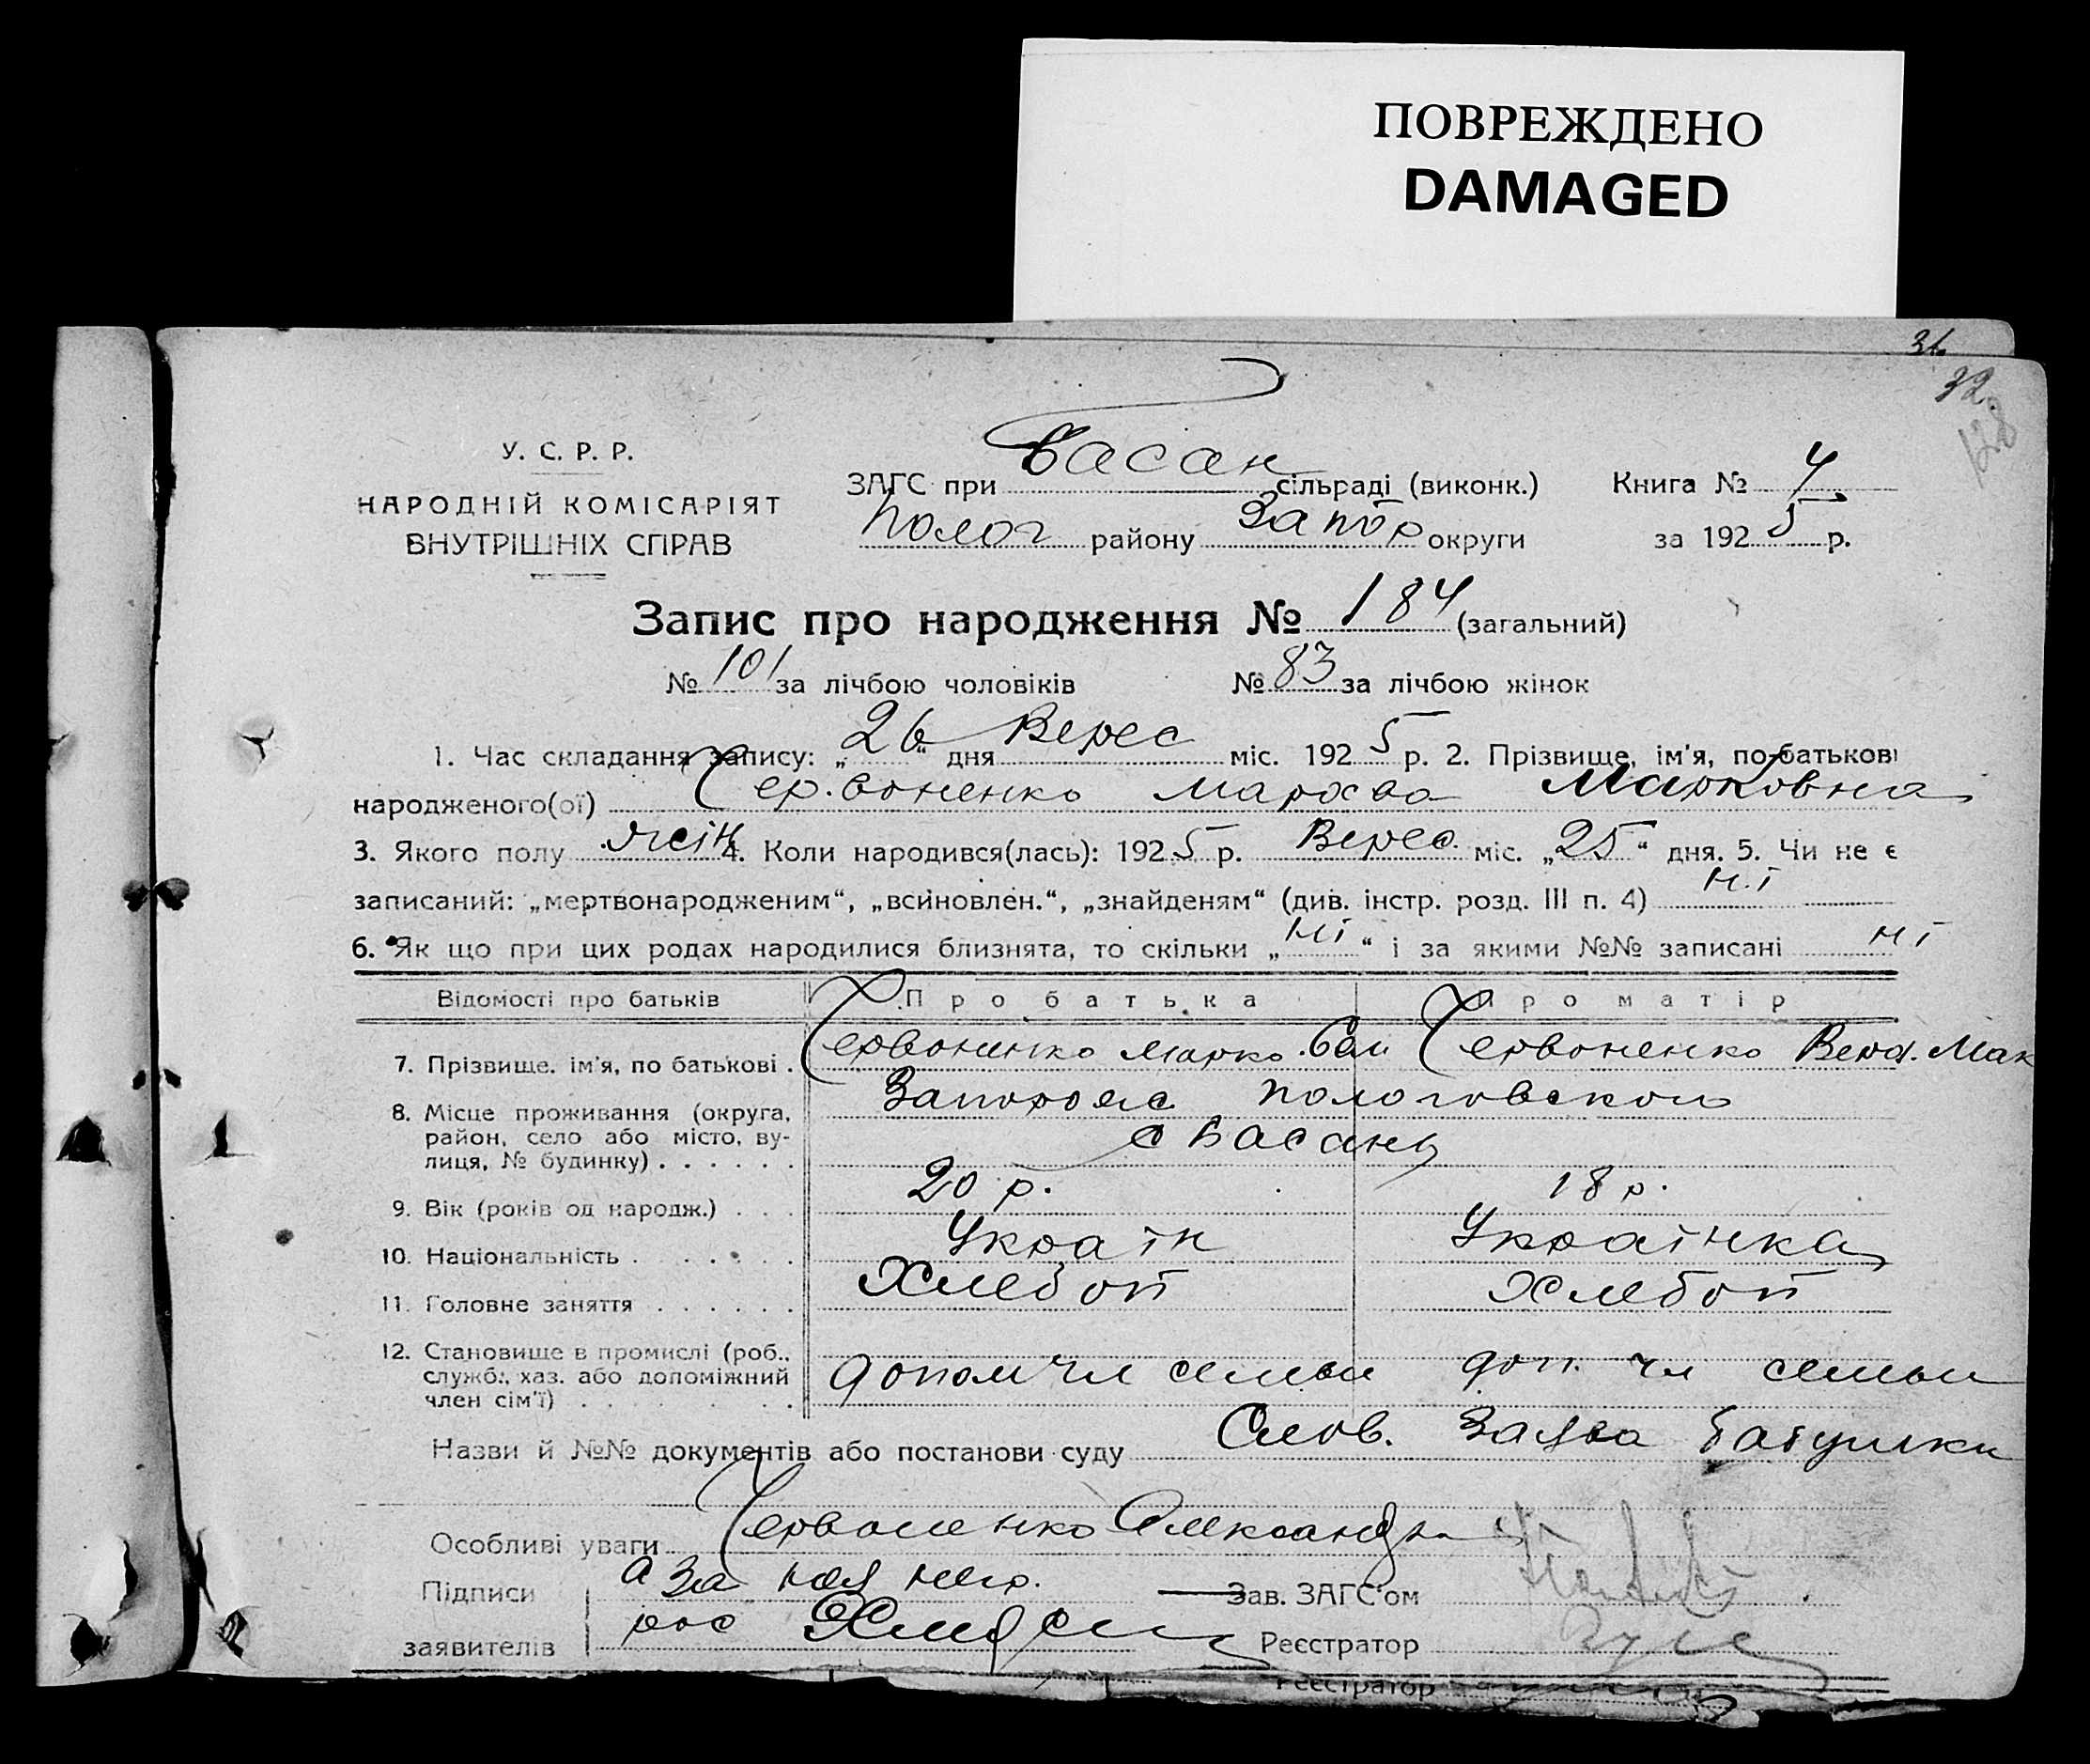 ПОВРЕЖДЕНО
DAMAGED
36
32.
У. С. Р. Р.
НАРОДНІЙ КОМІСАРІЯТ
ВНУТРІШНІХ СПРАВ
ЗАГС при Басан сільраді (виконк.) Книга № 4
Полог району Запор округи за 1925 р.
Запис про народження № 184 (загальний)
№ 101 за лічбою чоловіків № 83 за лічбою жінок
1. Час складання запису: „26“ дня Верес міс. 1925 р. 2. Прізвище, ім'я, по батькові
народженого(ої) Червоненко Марфа Марковна
3. Якого полу жін 4. Коли народився(лась): 1925 р. Верес. міс. „25“ дня. 5. Чи не є
записаний: „мертвонародженим“, „всиновлен.“, „знайденям“ (див. інстр. розд. III п. 4) ні
6. Як що при цих родах народилися близнята, то скільки „ні“ і за якими №№ записані ні
Відомості про батьків Про батька Про матір
7. Прізвище, ім'я, по батькові . Червоненко Марко Сем Червоненко Мак
8. Місце проживання (округа, Запорожс Пологовского
район, село або місто, ву- с Басань
лиця, № будинку) . . . . . .
9. Вік (років од народж.) . . . 20 р. 18 р.
10. Національність . . . . . Україн Українка
11. Головне заняття . . . . . . Хлебоп Хлебоп
12. Становище в промислі (роб.,
служб., хаз. або допоміжний допом чл семьи доп. чл семьи
член сім'ї) . . . . . . .
Назви й №№ документів або постанови суду Слов. Заява бабушки
Особливі уваги Червоненко Александра
Підписи а за ней негр. Зав. ЗАГС'ом
заявителів рос Реєстратор
Реєстратор